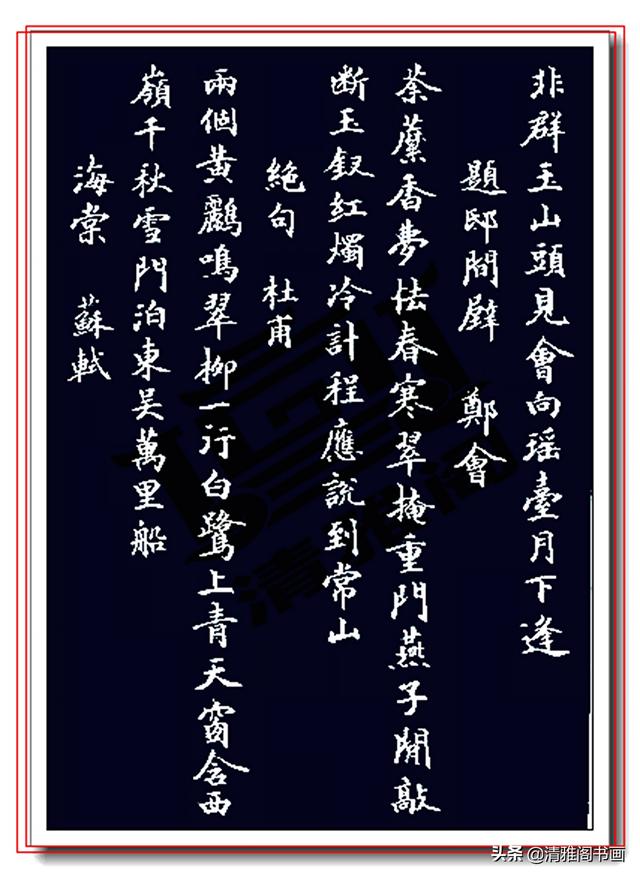 非群玉山頭見會向瑶臺月下逢
題邸間壁 鄭會
荼蘼香夢怯春寒翠掩重門燕子閒敲
断玉釵红燭冷計程應説到常山
絕句 杜甫
兩個黃鸝鳴翠柳一行白鷺上青天窗含西
嶺千秋雪門泊東吴萬里船
海棠 蘇軾
清雅阁
头条 @清雅阁书画